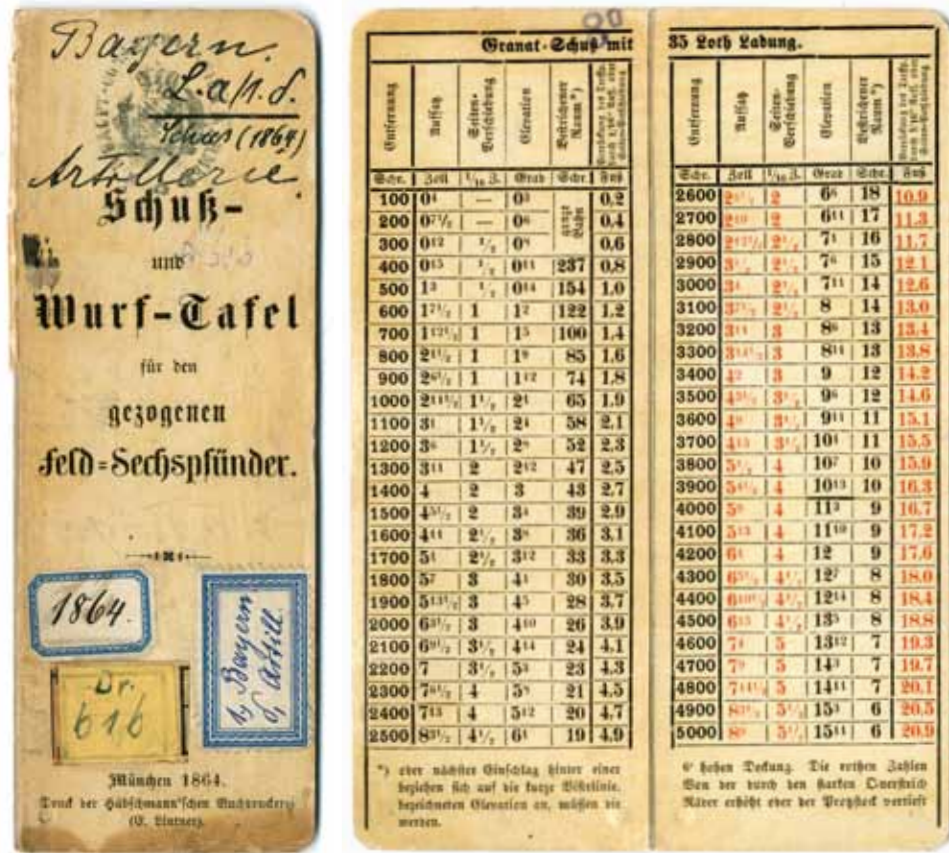 Bayern.
(1864)
Artillerie
Schuß-
und
Wurf-Tafel
für den
gezogenen
Feld=Sechspfünder.
1864.
Bayern
Artill.
Dr.
616
München 1864.
Druck der Hübschmann'schen Buchdruckerei
(E. Lintner).
Granat-Schuß mit
Entfernung Aufsatz Seiten-Verschiebung Elevation Bestrichener Raum *)
Schr. Zoll 1/10 Z. Grad Schr. Fuß
ganze Bahn
100 0⁴ — 0³ 0,2
200 0⁷½ — 0⁶ 0,4
300 0¹² ½ 0⁸ 0,6
400 0¹⁵ ½ 0¹¹ 237 0,8
500 1³ ½ 0¹⁴ 154 1,0
600 1⁷½ 1 1² 122 1,2
700 1¹²½ 1 1⁵ 100 1,4
800 2¹½ 1 1⁹ 85 1,6
900 2⁶½ 1 1¹² 74 1,8
1000 2¹¹½ 1½ 2¹ 65 1,9
1100 3¹ 1½ 2⁴ 58 2,1
1200 3⁶ 1½ 2⁸ 52 2,3
1300 3¹¹ 2 2¹² 47 2,5
1400 4 2 3 43 2,7
1500 4⁵½ 2 3⁴ 39 2,9
1600 4¹¹ 2½ 3⁸ 36 3,1
1700 5¹ 2½ 3¹² 33 3,3
1800 5⁷ 3 4¹ 30 3,5
1900 5¹³½ 3 4⁵ 28 3,7
2000 6³½ 3 4¹⁰ 26 3,9
2100 6⁹½ 3½ 4¹⁴ 24 4,1
2200 7 3½ 5³ 23 4,3
2300 7⁶½ 4 5⁸ 21 4,5
2400 7¹³ 4 5¹² 20 4,7
2500 8³½ 4½ 6¹ 19 4,9
*) oder nächster Einschlag hinter einer
beziehen sich auf die kurze Visirlinie.
bezeichneten Elevation an, müssen die
werden.
35 Loth Ladung.
Entfernung Aufsatz Seiten-Verschiebung Elevation Bestrichener Raum *)
Schr. Zoll 1/10 Z. Grad Schr. Fuß
2600 2 6⁶ 18 10.9
2700 2¹⁰ 2 6¹¹ 17 11.3
2800 2½ 7¹ 16 11.7
2900 2½ 7⁶ 15 12.1
3000 3⁴ 2½ 7¹¹ 14 12.6
3100 2½ 8 14 13.0
3200 3¹¹ 3 8⁶ 13 13.4
3300 3 8¹¹ 13 13.8
3400 4² 3 9 12 14.2
3500 3½ 9⁶ 12 14.6
3600 4⁹ 3½ 9¹¹ 11 15.1
3700 4¹³ 3½ 10¹ 11 15.5
3800 4 10⁷ 10 15.9
3900 4 10¹³ 10 16.3
4000 5⁹ 4 11³ 9 16.7
4100 5¹³ 4 11¹⁰ 9 17.2
4200 6¹ 4 12 9 17.6
4300 4½ 12⁷ 8 18.0
4400 4½ 12¹⁴ 8 18.4
4500 6¹⁵ 4½ 13⁵ 8 18.8
4600 7⁴ 5 13¹² 7 19.3
4700 7⁹ 5 14³ 7 19.7
4800 5 14¹¹ 7 20.1
4900 5½ 15³ 6 20.5
5000 5½ 15¹¹ 6 20.9
6' hohen Deckung. Die rothen Zahlen
Von der durch den starken Querstrich
Räder erhöht oder der Protzstock vertieft